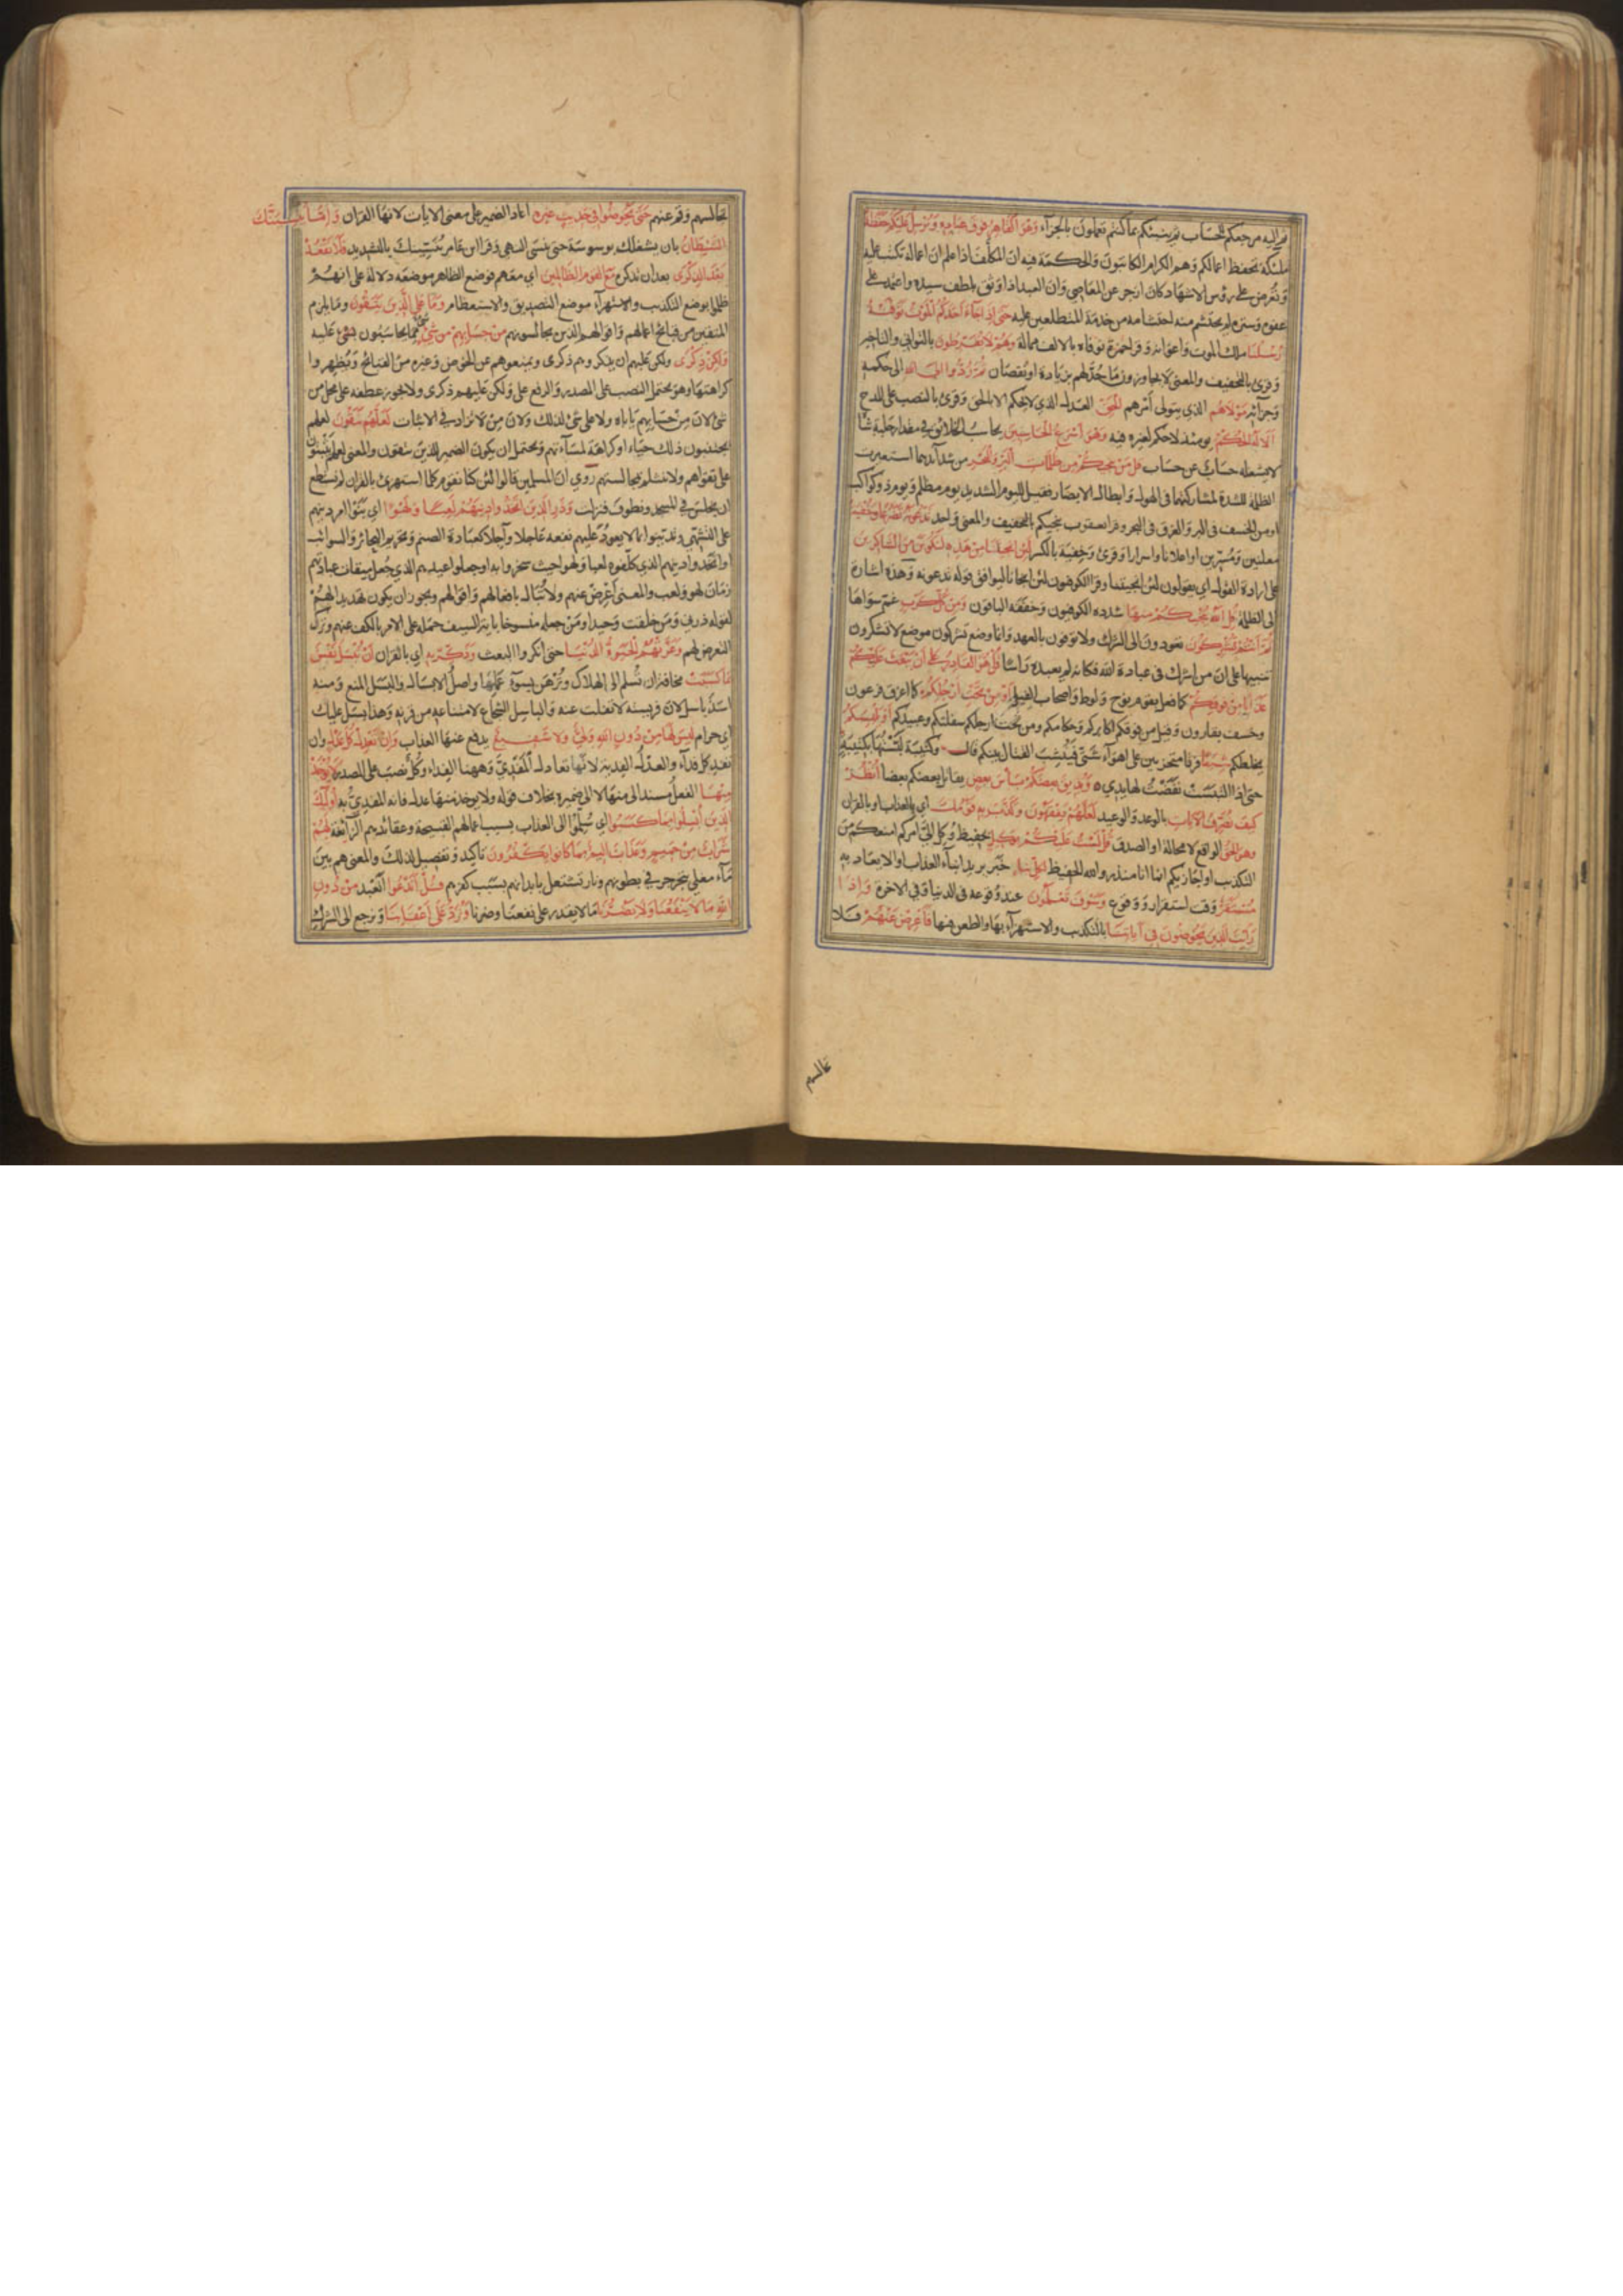 ثم اليه مرجعكم للحساب ثم ينبئكم بما كنتم تعملون بالجزاء وهو القاهر فوق عباده ويرسل عليكم حفظة
ملئكة تحفظ اعمالكم وهم الكرام الكاتبون والحكمة فيه ان المكلف اذا علم ان اعماله تكتب عليه
وتعرض على رؤس الاشهاد كان ازجر عن المعاصي وان العبد اذا وثق بلطف سيده واعتمد على
عفوه وستره لم يحتشم منه احتشامه من خدمة المتطلعين عليه حتى اذا جاء احدكم الموت توفته
رسلنا ملك الموت واعوانه وقرا حمزة توفاه بالالف ممالة وهم لا يفرطون بالتواني والتاخير
وقرئ بالتخفيف والمعنى لا يجاوزون ما حد لهم بزيادة او نقصان ثم ردوا الى الله الى حكمه
وجزائه مولاهم الذي يتولى امرهم الحق العدل الذي لا يحكم الا بالحق وقرئ بالنصب على المدح
الا له الحكم يومئذ لا حكم لغيره فيه وهو اسرع الحاسبين يحاسب الخلائق في مقدار حلبة شاة
لا يشغله حساب عن حساب قل من ينجيكم من ظلمات البر والبحر من شدائدهما استعيرت
الظلمة للشدة لمشاركتهما في الهول وابطال الابصار فقيل لليوم الشديد يوم مظلم ويوم ذو كواكب
او من الخسف في البر والغرق في البحر وقرا يعقوب ينجيكم بالتخفيف والمعنى واحد تدعونه تضرعا وخفية
معلنين ومسرين او اعلانا واسرارا وقرئ وخفية بالكسر لئن انجيتنا من هذه لنكونن من الشاكرين
على ارادة القول اي يقولون لئن انجيتنا وقرا الكوفيون لئن انجانا ليوافق قوله تدعونه وهذه اشارة
الى الظلمة قل الله ينجيكم منها شدده الكوفيون وخففه الباقون ومن كل كرب غم سواها
ثم انتم تشركون تعودون الى الشرك ولا توفون بالعهد وانما وضع تشركون موضع لا تشكرون
تنبيها على ان من اشرك في عبادة الله فكانه لم يعبده راسا قل هو القادر على ان يبعث عليكم
عذابا من فوقكم كما فعل بقوم نوح ولوط واصحاب الفيل او من تحت ارجلكم كما اغرق فرعون
وخسف بقارون وقيل من فوقكم اكابركم وحكامكم ومن تحت ارجلكم سفلتكم وعبيدكم او يلبسكم
يخلطكم شيعا فرقا متحزبين على اهواء شتى فينشب القتال بينكم قال وكتيبة لبستها بكتيبة
حتى اذا التبست نفضت لها يدي ويذيق بعضكم باس بعض يقاتل بعضكم بعضا انظر
كيف نصرف الايات بالوعد والوعيد لعلهم يفقهون وكذب به قومك اي بالعذاب او بالقران
وهو الحق الواقع لا محالة او الصدق قل لست عليكم بوكيل بحفيظ وكل الي امركم امنعكم من
التكذيب او اجازيكم انما انا منذر والله الحفيظ لكل نبا خبر يريد انباء العذاب والايعاد به
مستقر وقت استقرار ووقوع وسوف تعلمون عند وقوعه في الدنيا وفي الاخرة واذا
رايت الذين يخوضون في اياتنا بالتكذيب والاستهزاء بها والطعن فيها فاعرض عنهم فلا
تجالسهم
تجالسهم وقم عنهم حتى يخوضوا في حديث غيره اعاد الضمير على معنى الايات لانها القران واما ينسينك
الشيطان بان يشغلك بوسوسة حتى ينسى النهي وقرا ابن عامر ينسينك بالتشديد فلا تقعد
بعد الذكرى بعد ان تذكره مع القوم الظالمين اي معهم فوضع الظاهر موضعه دلالة على انهم
ظلموا بوضع التكذيب والاستهزاء موضع التصديق والاستعظام وما على الذين يتقون وما يلزم
المتقين من قبائح اعمالهم واقوالهم الذين يجالسونهم من حسابهم من شيء مما يحاسبون عليه
ولكن ذكرى ولكن عليهم ان يذكروهم ذكرى ويمنعوهم عن الخوض وغيره من القبائح ويظهروا
كراهتها وهو يحتمل النصب على المصدر والرفع على ولكن عليهم ذكرى ولا يجوز عطفه على محل من
شئ لان من حسابهم ياباه ولا على شئ لذلك ولان من لا تزاد في الاثبات لعلهم يتقون لعلهم
يجتنبون ذلك حياء او كراهة لمساءتهم ويحتمل ان يكون الضمير للذين يتقون والمعنى لعلهم يثبتون
على تقواهم ولا تنثلم بمجالستهم روي ان المسلمين قالوا لئن كنا نقوم كلما استهزئ بالقران لم نستطع
ان نجلس في المسجد ونطوف فنزلت وذر الذين اتخذوا دينهم لعبا ولهوا اي بنوا امر دينهم
على التشهي وتدينوا بما لا يعود عليهم نفعه عاجلا وآجلا كعبادة الصنم وتحريم البحائر والسوائب
او اتخذوا دينهم الذي كلفوه لعبا ولهوا حيث سخروا به او جعلوا عيدهم الذي جعل ميقات عبادتهم
زمان لهو ولعب والمعنى اعرض عنهم ولا تبال بافعالهم واقوالهم ويجوز ان يكون تهديدا لهم
لقوله ذرني ومن خلقت وحيدا ومن جعله منسوخا باية السيف حمله على الامر بالكف عنهم وترك
التعرض لهم وغرتهم الحيوة الدنيا حتى انكروا البعث وذكر به اي بالقران ان تبسل نفس
بما كسبت مخافة ان تسلم الى الهلاك وترهن بسوء عملها واصل الابسال والبسل المنع ومنه
اسد باسل لان فريسته لا تفلت عنه والباسل الشجاع لامتناعه من قرنه وهذا بسل عليك
اي حرام ليس لها من دون الله ولي ولا شفيع يدفع عنها العذاب وان تعدل كل عدل وان
تفد كل فداء والعدل الفدية لانها تعادل المفدي وههنا الفداء وكل نصب على المصدر لا يؤخذ
منها الفعل مسند الى منها لا الى ضميره بخلاف قوله ولا يوخذ منها عدل فانه المفدي به اولئك
الذين ابسلوا بما كسبوا اي سلموا الى العذاب بسبب اعمالهم القبيحة وعقائدهم الزائغة لهم
شراب من حميم وعذاب اليم بما كانوا يكفرون تاكيد وتفصيل لذلك والمعنى هم بين
ماء مغلي يتجرجر في بطونهم ونار تشتعل بابدانهم بسبب كفرهم قل اندعوا انعبد من دون
الله ما لا ينفعنا ولا يضرنا ما لا يقدر على نفعنا وضرنا ونرد على اعقابنا ونرجع الى الشرك